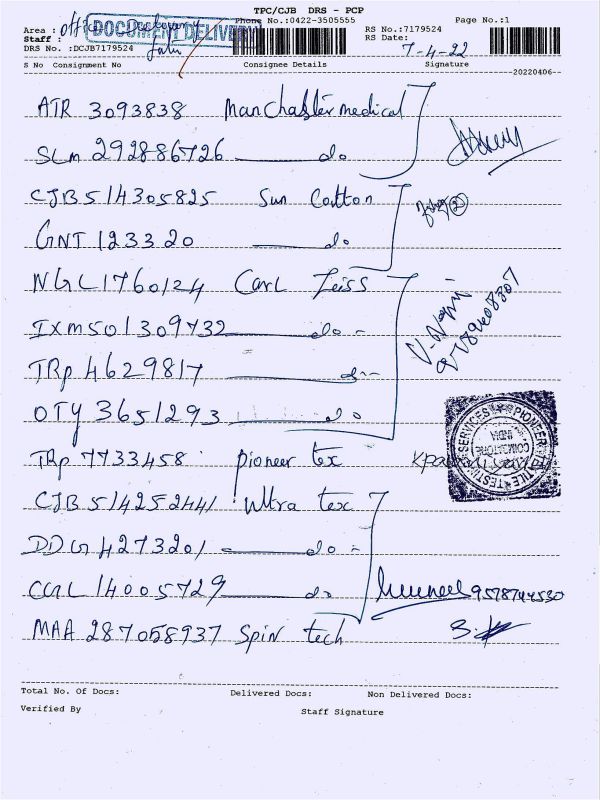 TPC/CJB DRS - PCP
Phone No.:0422-3505555 Page No.:1
Area : RS No.:7179524
Staff : DOCUMENT DELIVERY RS Date:
DRS No. :DCJB7179524 7-4-22
S No Consignment No Consignee Details Signature
20220406
ATR 3093838 Manchaster medical
SLM 292886726 do
CJB 514305825 Sun Cotton
GNT 123320 do
NGL 1760124 Carl Zeiss
IXM 501309732 do
TRP 4629817 do
OTY 3651293 do
TRP 7733458 pioneer tex
PIONEER TESTING SERVICES COIMBATORE INDIA
CJB 514252441 Ultra tex
DDG 4273201 do
CGL 14005729 do 9578744530
MAA 287058937 Spin tech
Total No. Of Docs: Delivered Docs: Non Delivered Docs:
Verified By Staff Signature